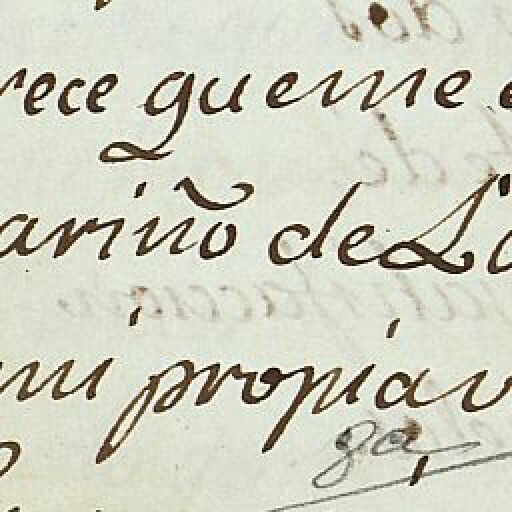 rece queme e
ariño de Lo
mi propia v
ga